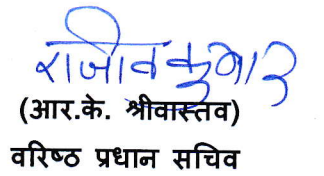 राजीव कुमार
(आर.के. श्रीवास्तव)
वरिष्ठ प्रधान सचिव